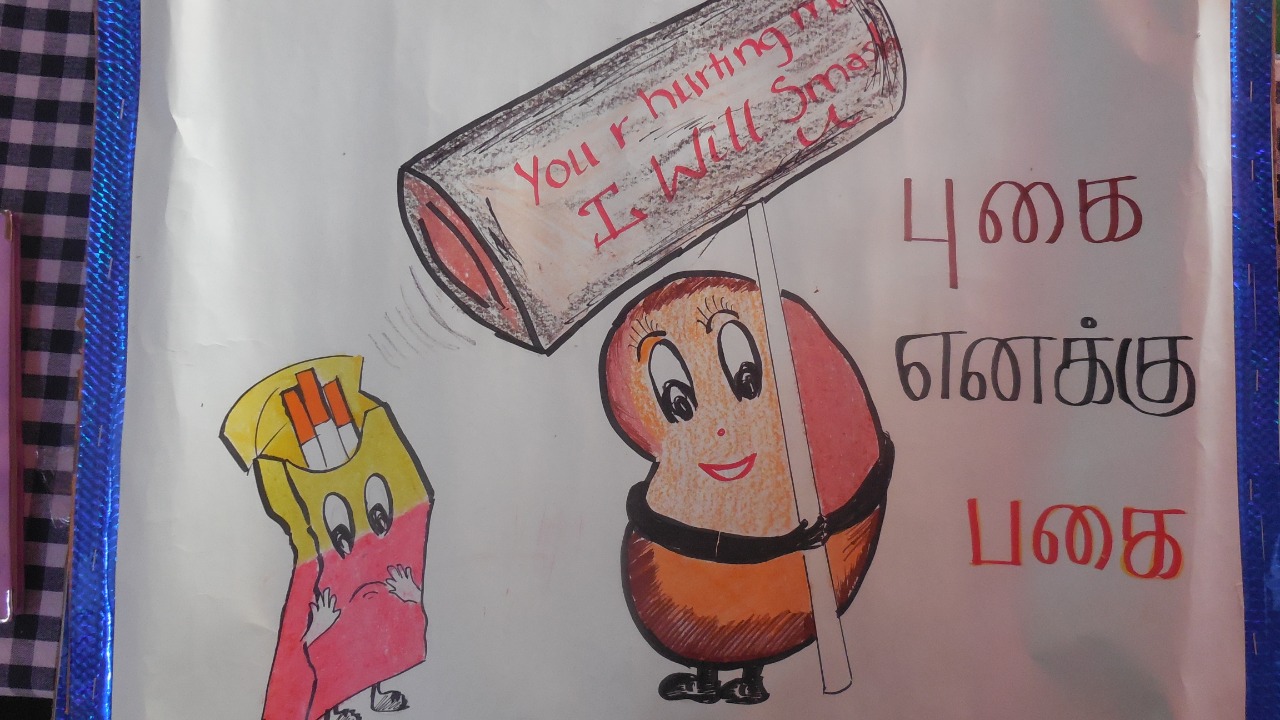 You r hurting me
I Will Smash
u
புகை
எனக்கு
பகை